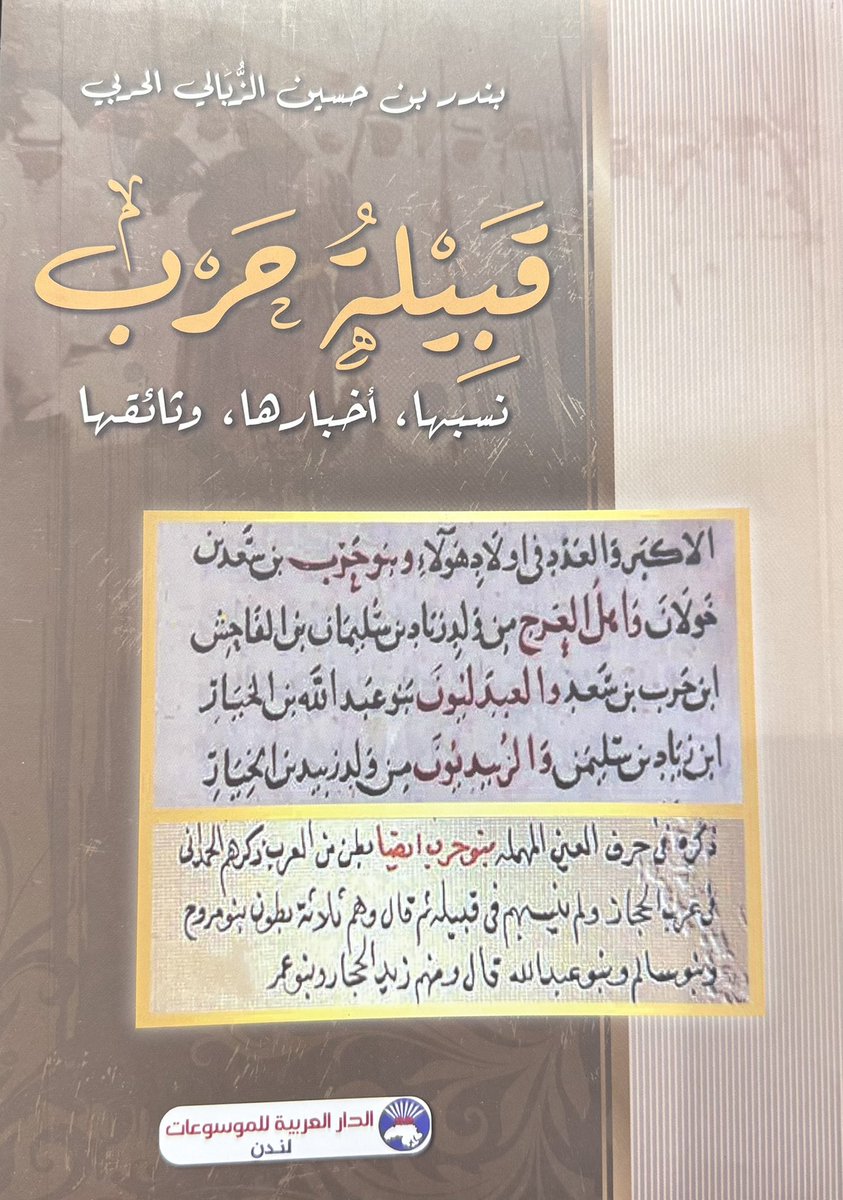 بندر بن حسين الزُّبَالي الحربي
قَبِيْلةُ حَرْب
نسبها، أخبارها، وثائقها
الاكبر والعدد فى اولاد هولآء وبنو حَرْب بن سَعْد بن
خولان وَاهلُ العَرج من ولد زياد بن سُليمان بن الفاحش
ابن حَرب بن سَعد والعبدليونَ بنو عَبد الله بن الخيار
ابن زياد بن سليمن وَالزبيديونَ من ولد زبيد بن الخيار
ذكره فى حرف العين المهمله بنو حرب ايضا بطن من العرب ذكرهم الحمدانى
فى عرب الحجاز ولم ينسبهم فى قبيلة ثم قال وهم ثلاثة بطون بنو مروح
وبنو سالم وبنو عبد الله قال ومنهم زبيد الحجاز وبنو عمر
الدار العربية للموسوعات
لندن